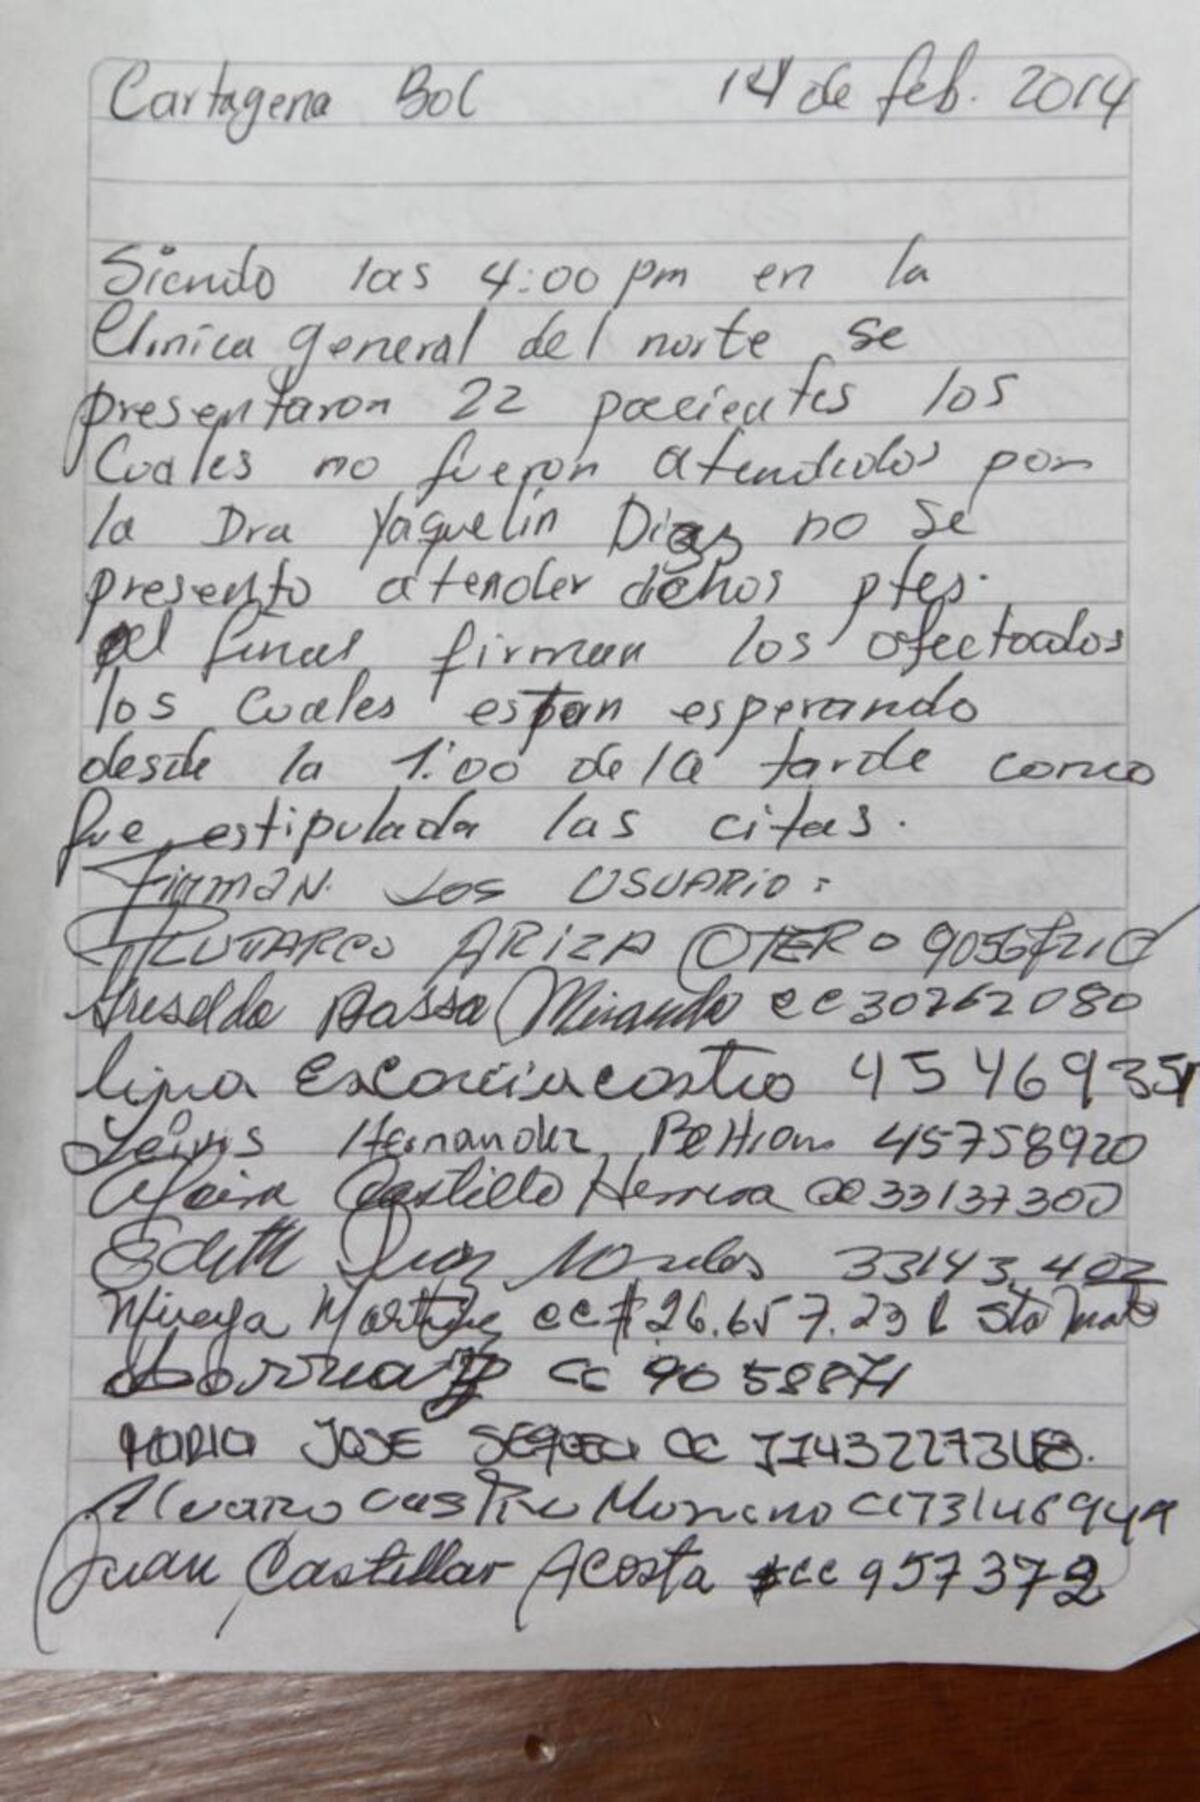 Cartagena Bol 14 de feb. 2014
Siendo las 4:00 pm en la
Clinica general del norte se
presentaron 22 pacientes los
Cuales no fueron atendidos por
la Dra Yaquelin Diaz no se
presento atender dichos ptes.
al final firman los afectados
los cuales estan esperando
desde la 1:00 de la tarde como
fue estipulada las citas.
Firman los USUARIO:
PLUTARCO ARIZA OTERO
Miranda cc 30762080
Escorcia castro 4546935
Hernandez Beltran 45758920
Castillo Herrera cc 33137300
Edith 33143.402
Mireya Martinez cc # 26.657.23
cc 9058871
MARIA JOSE CC
Alvaro castro Moreno cc 73146949
Juan Castellar Acosta cc 957372